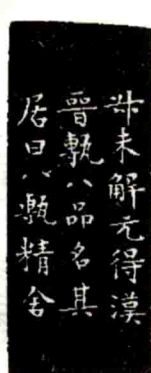 叔未解元得漢
晉甎八品名其
居曰八甎精舍